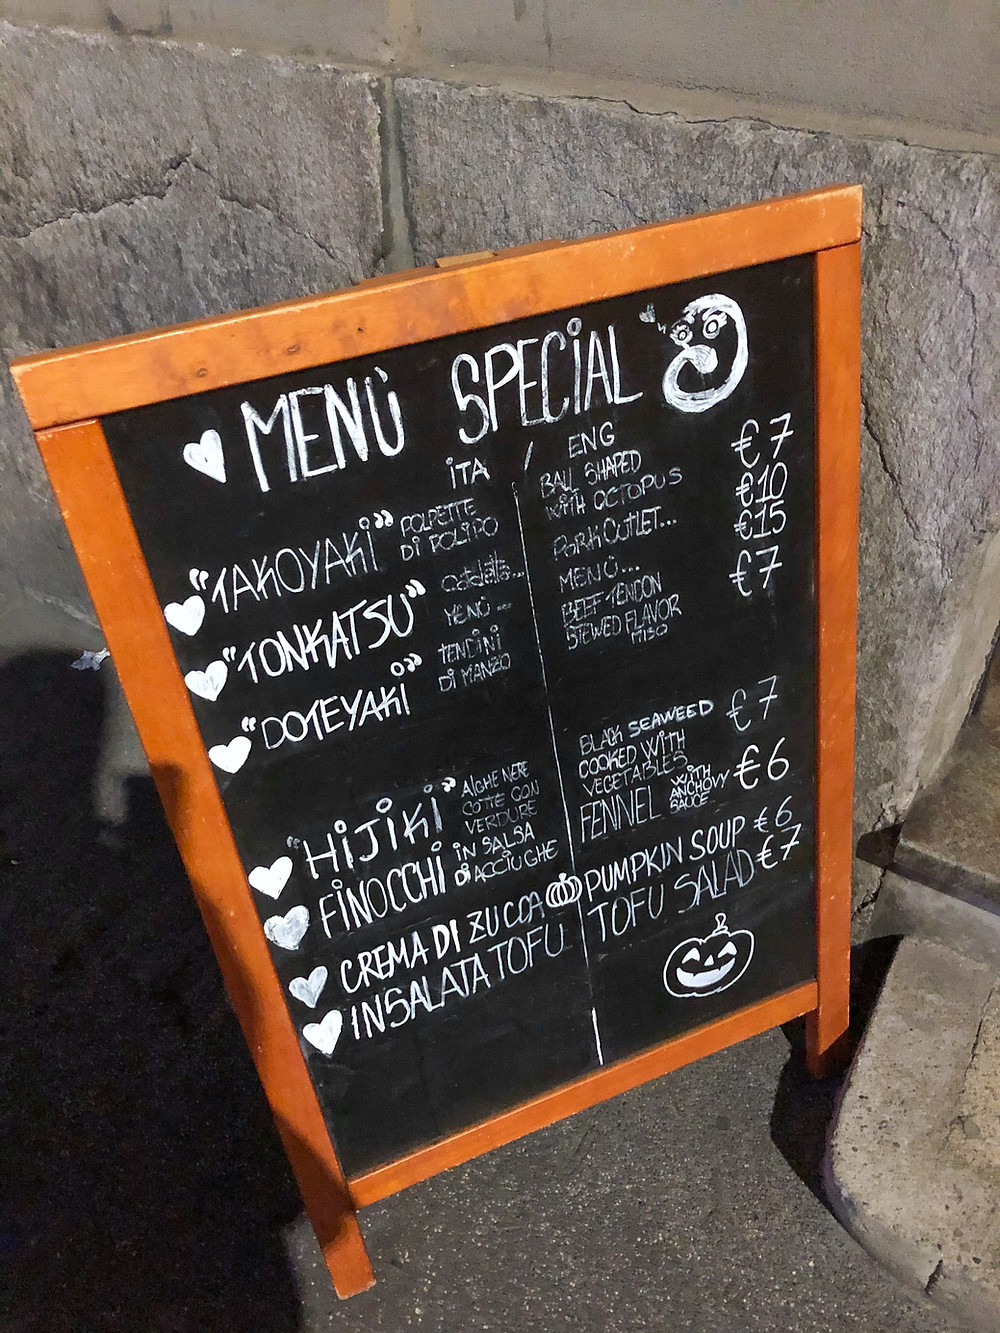 MENÙ SPECIAL
ITA / ENG
"TAKOYAKI" POLPETTE DI POLIPO BALL SHAPED WITH OCTOPUS €7
"TONKATSU" PORK CUTLET... €10
MENÙ ... MENÙ... €15
"DOTEYAKI" TENDINI DI MANZO BEEF TENDON STEWED FLAVOR MISO €7
"HIJIKI" ALGHE NERE COTTE CON VERDURE BLACK SEAWEED COOKED WITH VEGETABLES €7
FINOCCHI IN SALSA DI ACCIUGHE FENNEL WITH ANCHOVY SAUCE €6
CREMA DI ZUCCA PUMPKIN SOUP €6
INSALATA TOFU TOFU SALAD €7